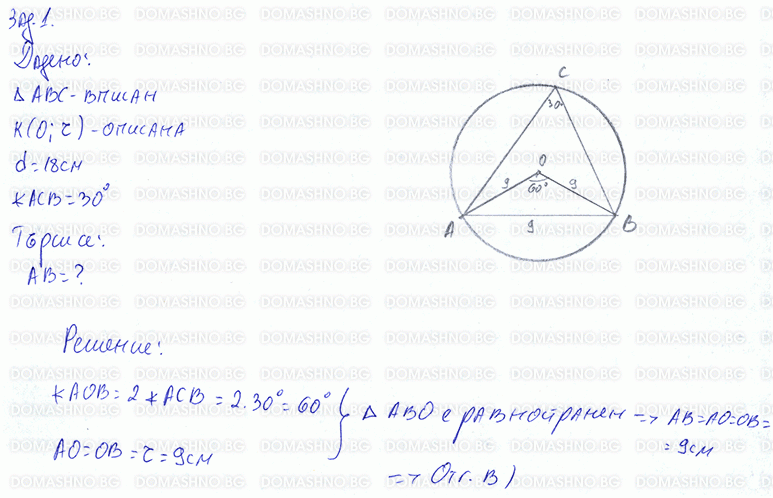 Зад. 1.
Дадено:
Δ ABC - вписан
K(O; r) - описана
d = 18 см
∢ACB = 30°
Търси се:
AB = ?
C
30°
O
9
60°
9
A
9
B
Решение:
∢AOB = 2 ∢ACB = 2.30° = 60°
AO = OB = r = 9 см
Δ ABO е равностранен => AB = AO = OB =
= 9 см
=> Отг. В)
DOMASHNO.BG